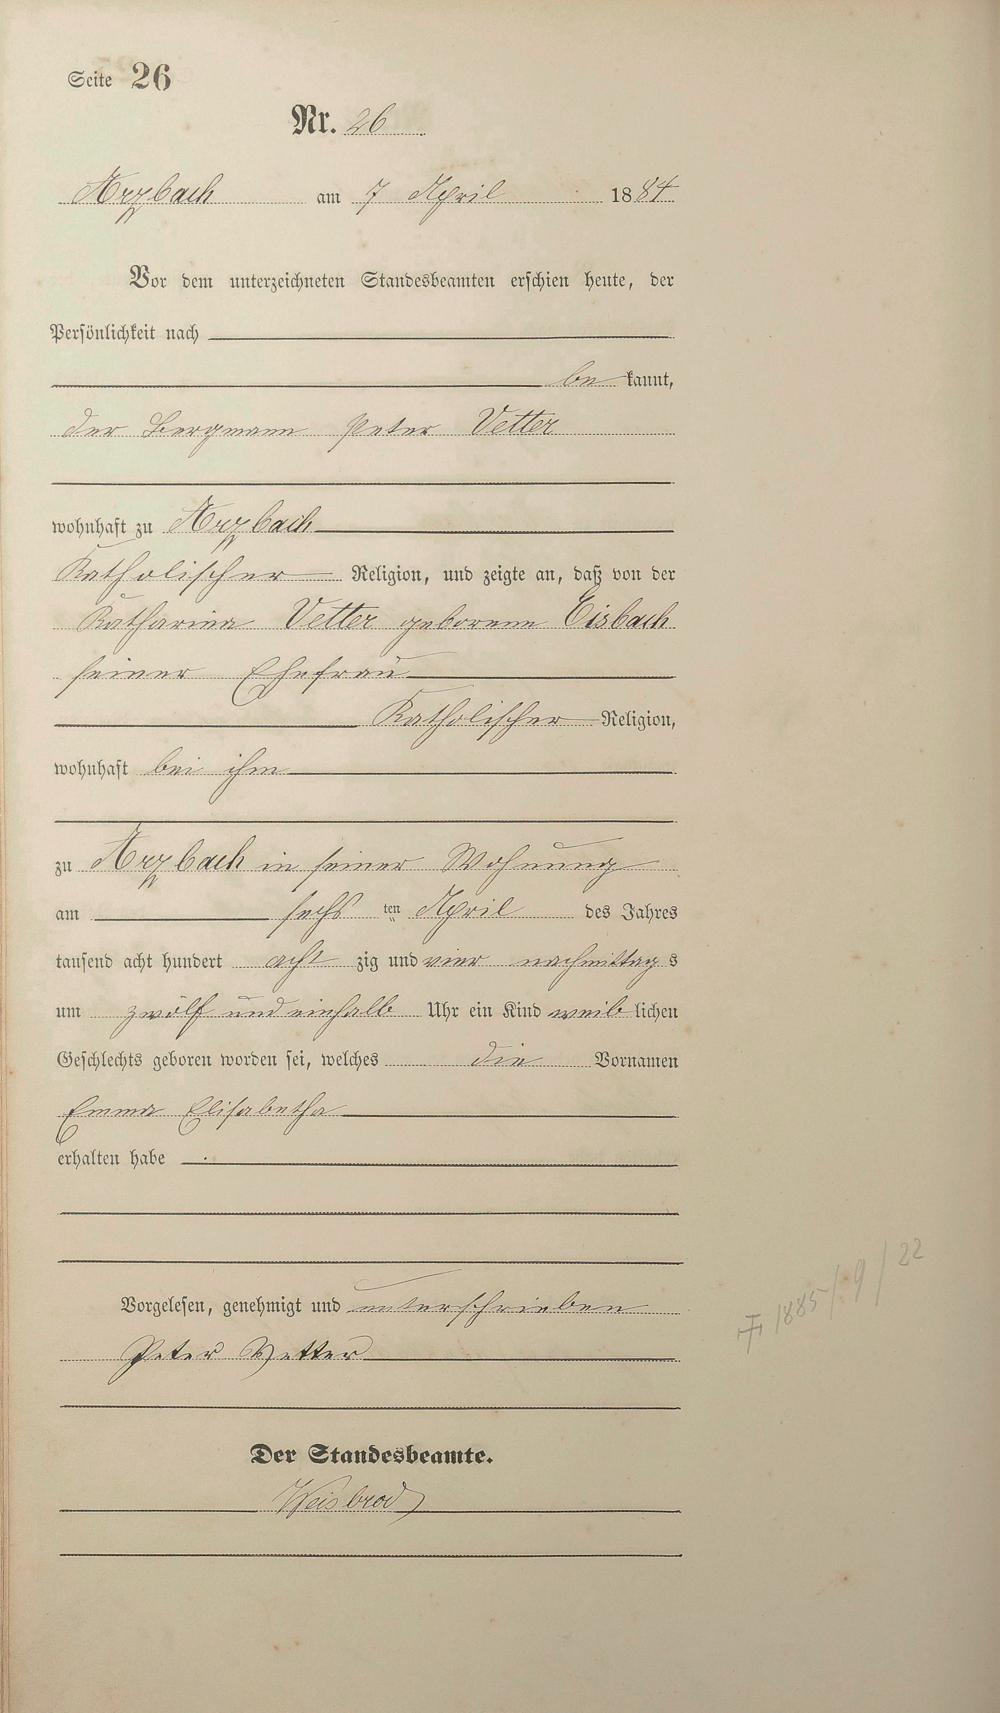 Seite 26
Nr. 26
Arzbach am 7 April 1884
Vor dem unterzeichneten Standesbeamten erschien heute, der
Persönlichkeit nach
be kannt,
der Bergmann Peter Vetter
wohnhaft zu Arzbach
Katholischer Religion, und zeigte an, daß von der
Katharina Vetter geborenen Eisbach
seiner Ehefrau
Katholischer Religion,
wohnhaft bei ihm
zu Arzbach in seiner Wohnung
am sechs ten April des Jahres
tausend acht hundert acht zig und vier nachmittag s
um zwölf und einhalb Uhr ein Kind weib lichen
Geschlechts geboren worden sei, welches die Vornamen
Emma Elisabetha
erhalten habe
Vorgelesen, genehmigt und unterschrieben
Peter Vetter
Der Standesbeamte.
Weisbrod
1885/9/22